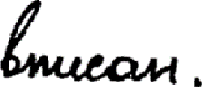 вписан.